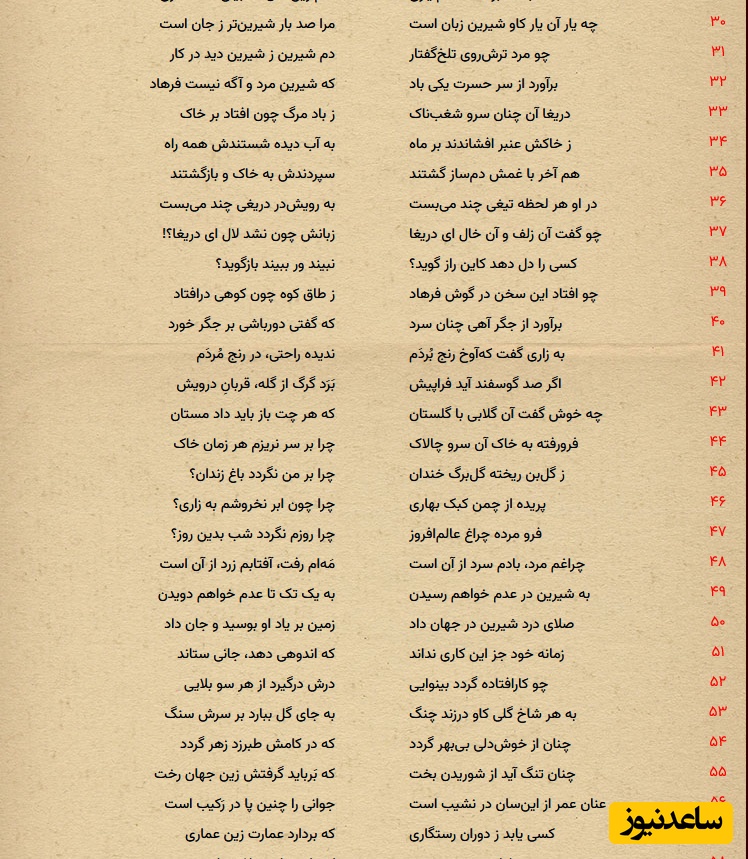 ۳۰ چه یار آن یار کاو شیرین زبان است مرا صد بار شیرین‌تر ز جان است
۳۱ چو مرد ترش‌روی تلخ‌گفتار دم شیرین ز شیرین دید در کار
۳۲ برآورد از سر حسرت یکی باد که شیرین مرد و آگه نیست فرهاد
۳۳ دریغا آن چنان سرو شغب‌ناک ز باد مرگ چون افتاد بر خاک
۳۴ ز خاکش عنبر افشاندند بر ماه به آب دیده شستندش همه راه
۳۵ هم آخر با غمش دم‌ساز گشتند سپردندش به خاک و بازگشتند
۳۶ در او هر لحظه تیغی چند می‌بست به رویش‌در دریغی چند می‌بست
۳۷ چو گفت آن زلف و آن خال ای دریغا زبانش چون نشد لال ای دریغا؟!
۳۸ کسی را دل دهد کاین راز گوید؟ نبیند ور ببیند بازگوید؟
۳۹ چو افتاد این سخن در گوش فرهاد ز طاق کوه چون کوهی درافتاد
۴۰ برآورد از جگر آهی چنان سرد که گفتی دورباشی بر جگر خورد
۴۱ به زاری گفت که‌آوخ رنج بُردَم ندیده راحتی، در رنج مُردَم
۴۲ اگر صد گوسفند آید فراپیش بَرَد گرگ از گله، قربانِ درویش
۴۳ چه خوش گفت آن گلابی با گلستان که هر چت باز باید داد مستان
۴۴ فرورفته به خاک آن سرو چالاک چرا بر سر نریزم هر زمان خاک
۴۵ ز گل‌بن ریخته گل‌برگ خندان چرا بر من نگردد باغ زندان؟
۴۶ پریده از چمن کبک بهاری چرا چون ابر نخروشم به زاری؟
۴۷ فرو مرده چراغ عالم‌افروز چرا روزم نگردد شب بدین روز؟
۴۸ چراغم مرد، بادم سرد از آن است مَه‌ام رفت، آفتابم زرد از آن است
۴۹ به شیرین در عدم خواهم رسیدن به یک تک تا عدم خواهم دویدن
۵۰ صلای درد شیرین در جهان داد زمین بر یاد او بوسید و جان داد
۵۱ زمانه خود جز این کاری نداند که اندوهی دهد، جانی ستاند
۵۲ چو کارافتاده گردد بینوایی درش درگیرد از هر سو بلایی
۵۳ به هر شاخ گلی کاو درزند چنگ به جای گل ببارد بر سرش سنگ
۵۴ چنان از خوش‌دلی بی‌بهر گردد که در کامش طبرزد زهر گردد
۵۵ چنان تنگ آید از شوریدن بخت که بَرباید گرفتش زین جهان رخت
عنان عمر از این‌سان در نشیب است جوانی را چنین پا در رَکیب است
کسی یابد ز دوران رستگاری که بردارد عمارت زین عماری
ساعدنیوز